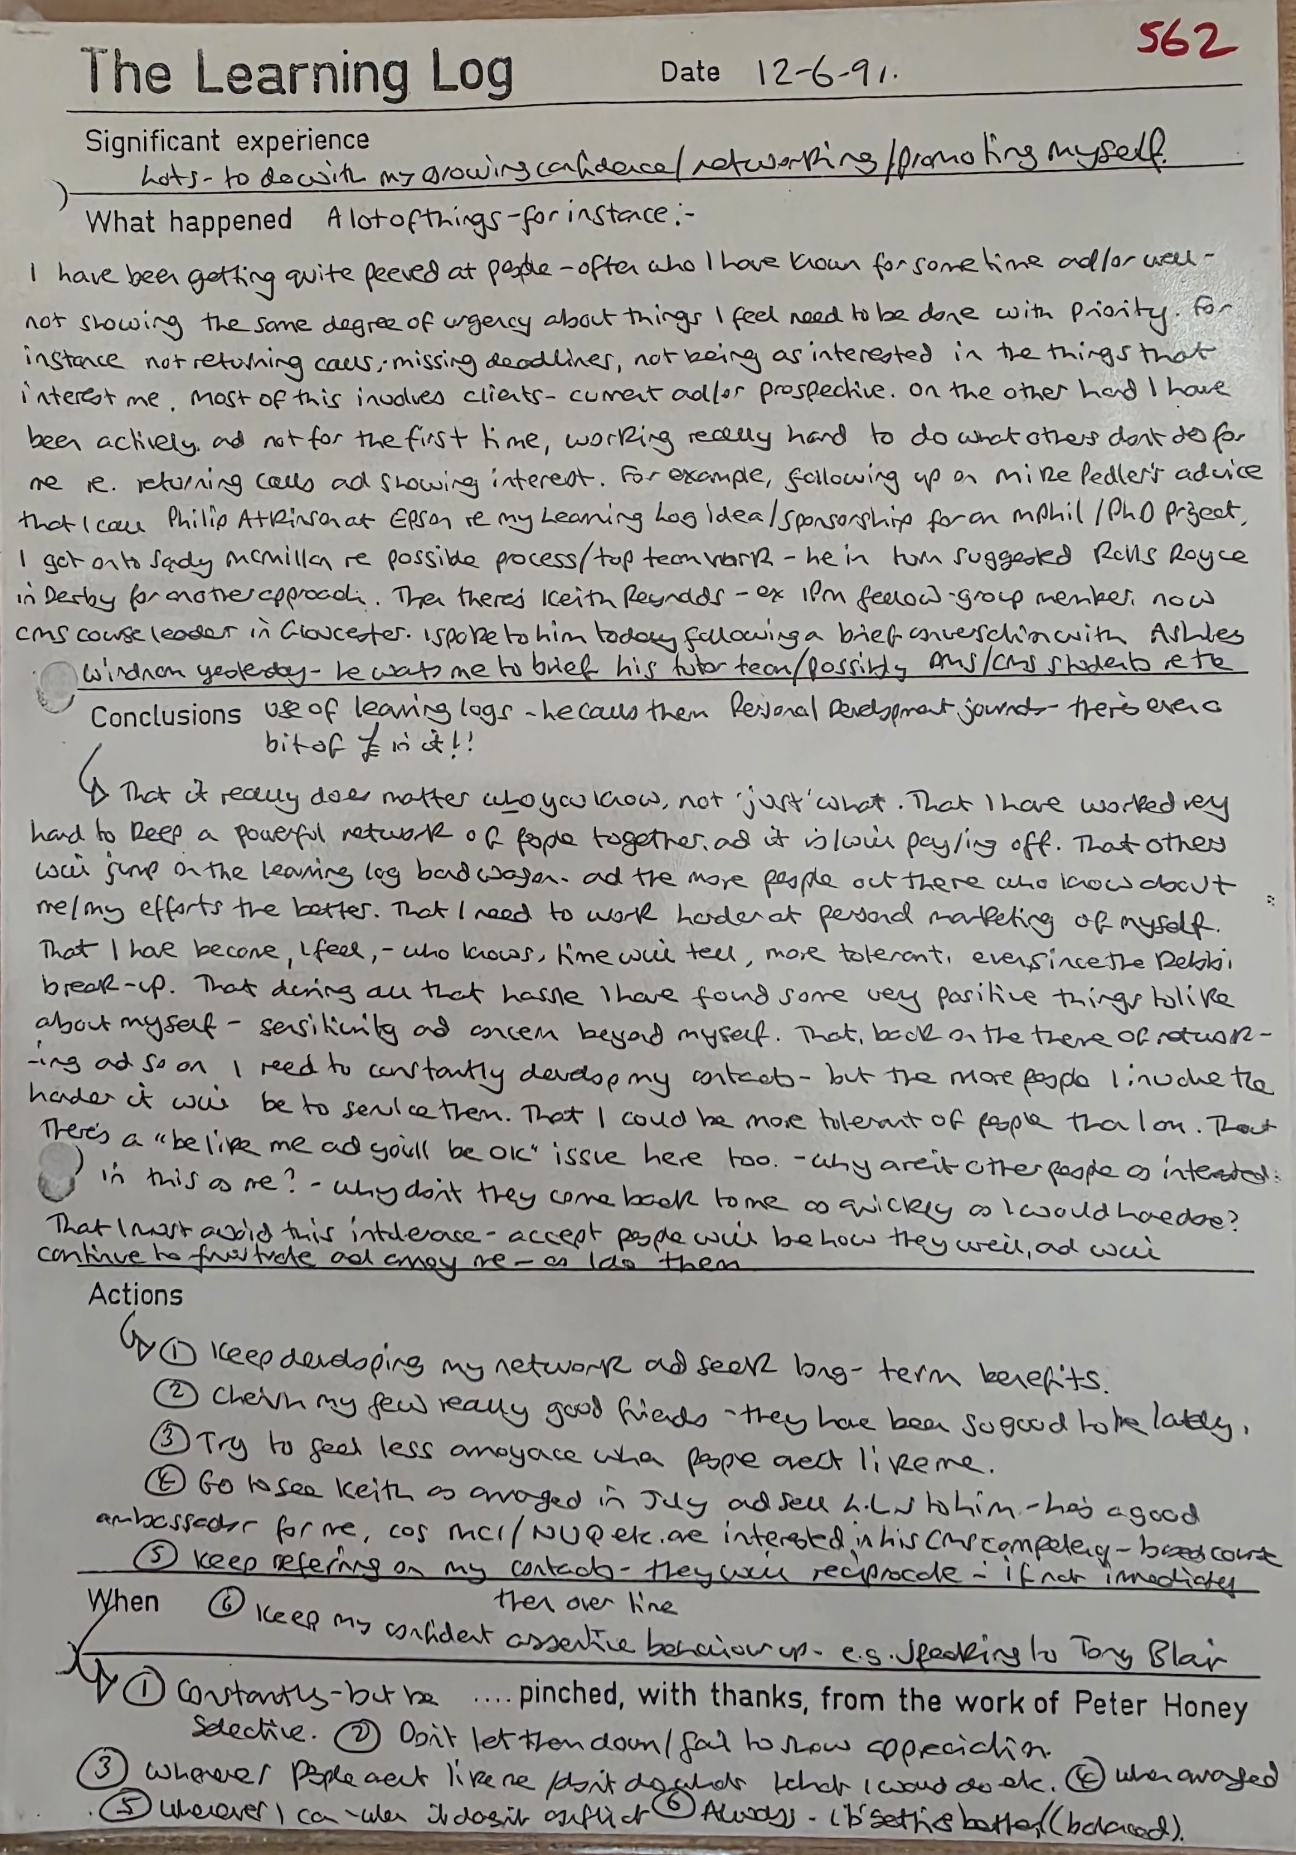 562
The Learning Log Date 12-6-91.
Significant experience
Lots - to do with my growing confidence/networking/promoting myself.
What happened A lot of things - for instance :-
I have been getting quite peeved at people - often who I have known for some time ad/or well -
not showing the same degree of urgency about things I feel need to be done with priority. For
instance not returning calls, missing deadlines, not being as interested in the things that
interest me. Most of this involves clients - current ad/or prospective. On the other hand I have
been actively, ad not for the first time, working really hard to do what others dont do for
me re. returning calls ad showing interest. For example, following up on Mike Pedler's advice
that I call Philip Atkinson at Epson re my Learning Log idea/sponsorship for an MPhil/PhD project,
I got onto Sandy McMillan re possible process/top team work - he in turn suggested Rolls Royce
in Derby for another approach. Then there's Keith Reynolds - ex IPM fellow-group member, now
CMS course leader in Gloucester. I spoke to him today following a brief conversation with Ashley
yesterday - he wants me to brief his tutor team/possibly DMS/CMS students re the
Conclusions use of learning logs - he calls them Personal Development journals - there's even a
bit of £ in it!!
That it really does matter who you know, not 'just' what. That I have worked very
hard to keep a powerful network of people together, ad it is/will pay/ing off. That others
will jump on the learning log bandwagon - ad the more people out there who know about
me/my efforts the better. That I need to work harder at personal marketing of myself.
That I have become, I feel, - who knows, time will tell, more tolerant, ever since the Debbi
break-up. That during all that hassle I have found some very positive things to like
about myself - sensitivity ad concern beyond myself. That, back on the theme of network-
-ing ad so on I need to constantly develop my contacts - but the more people I involve the
harder it will be to service them. That I could be more tolerant of people than I am. That
There's a "be like me ad you'll be OK" issue here too. - why aren't other people as interested
in this as me? - why don't they come back to me as quickly as I would have done?
That I must avoid this intolerance - accept people will be how they will, ad will
continue to frustrate ad annoy me - as I do them
Actions
① Keep developing my network ad seek long-term benefits.
② Cherish my few really good friends - they have been so good to me lately.
③ Try to feel less annoyance when people aren't like me.
④ Go to see Keith as arranged in July ad sell L.L.s to him - he's a good
ambassador for me, cos MCI/NVQ etc. are interested in his CMS competency-based course
⑤ Keep refering on my contacts - they will reciprocate - if not immediately
then over time
When ⑥ Keep my confident assertive behaviour up - e.g. speaking to Tony Blair
① Constantly - but be .... pinched, with thanks, from the work of Peter Honey
selective. ② Don't let them down/fail to show appreciation.
③ Whenever people aren't like me/don't do what I would do etc. ④ When arranged
⑤ Wherever I can - when it doesn't conflict ⑥ Always - (balanced).